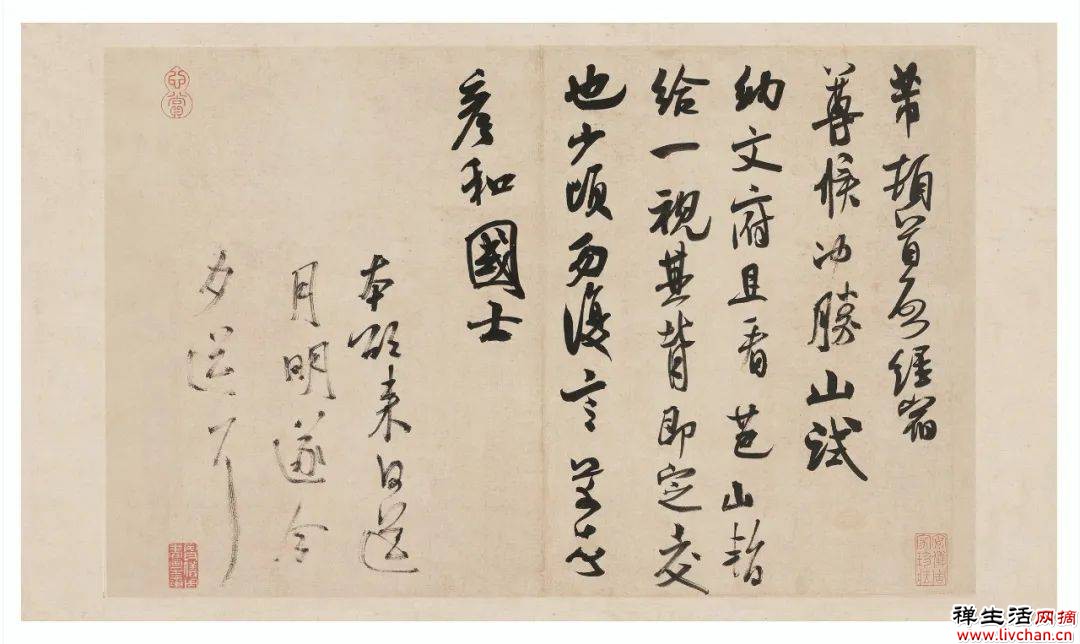 芾頓首啟經宿
尊候沖勝山試
納文府且看芭山暫
給一視其背即定交
也少頃勿復言芾頓首
彥和國士
本欲來日送
月明遂今
夕送耳
心賞
安儀周家珍藏
禅生活网摘
www.livchan.cn